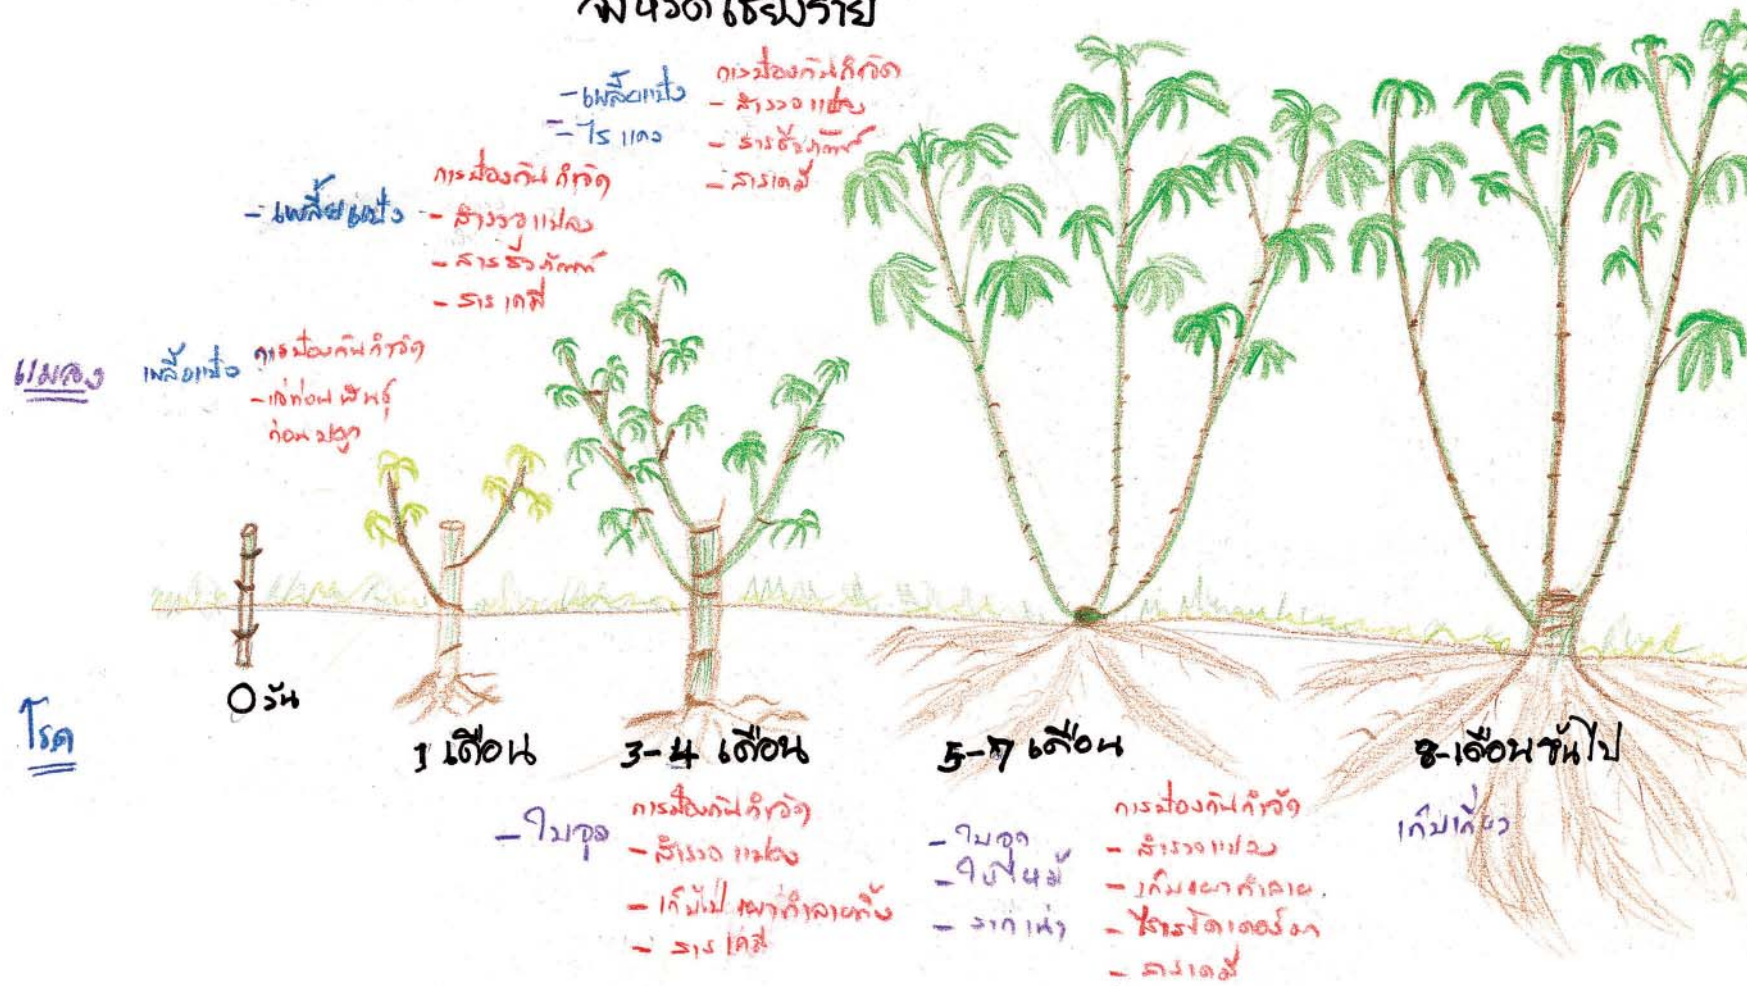 จังหวัดเชียงราย
- เพลี้ยแป้ง
- ไรแดง
การป้องกันกำจัด
- สำรวจแปลง
- สารชีวภัณฑ์
- สารเคมี
- เพลี้ยแป้ง
การป้องกันกำจัด
- สำรวจแปลง
- สารชีวภัณฑ์
- สารเคมี
แมลง
เพลี้ยแป้ง
การป้องกันกำจัด
- แช่ท่อนพันธุ์
ก่อนปลูก
0 วัน
1 เดือน
3-4 เดือน
5-7 เดือน
8-เดือนขึ้นไป
โรค
- ใบจุด
การป้องกันกำจัด
- สำรวจแปลง
- เก็บไปเผาทำลายทิ้ง
- สารเคมี
- ใบจุด
- ใบไหม้
- รากเน่า
การป้องกันกำจัด
- สำรวจแปลง
- เก็บเผาทำลาย
- ไตรโคเดอร์มา
- สารเคมี
เก็บเกี่ยว